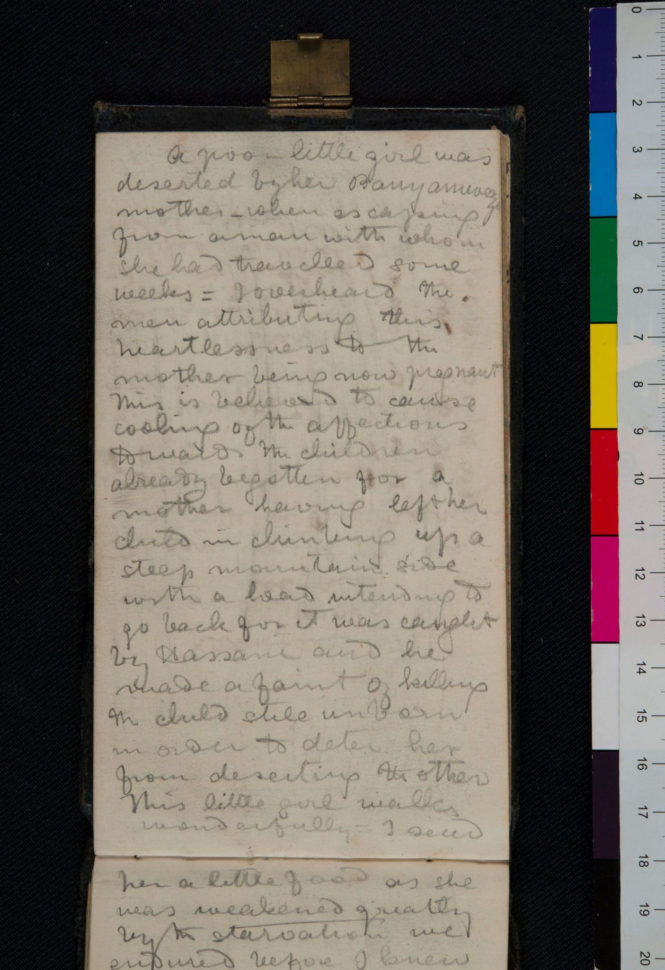 A poor little girl was
deserted by her Banyamwezi
mother - when escaping
from a man with whom
she had travelled some
weeks = I overheard the
men attributing this
heartlessness to the
mother being now pregnant
This is believed to cause
cooling of the affections
towards the children
already begotten for a
mother having left her
child in climbing up a
steep mountain side
with a load intending to
go back for it was caught
by Hassani and he
made a faint of killing
the child still unborn
in order to deter her
from deserting the other
This little girl walks
wonderfully = I send
her a little food as she
was weakened greatly
by the starvation we
endured before I knew
0
1
2
3
4
5
6
7
8
9
10
11
12
13
14
15
16
17
18
19
20